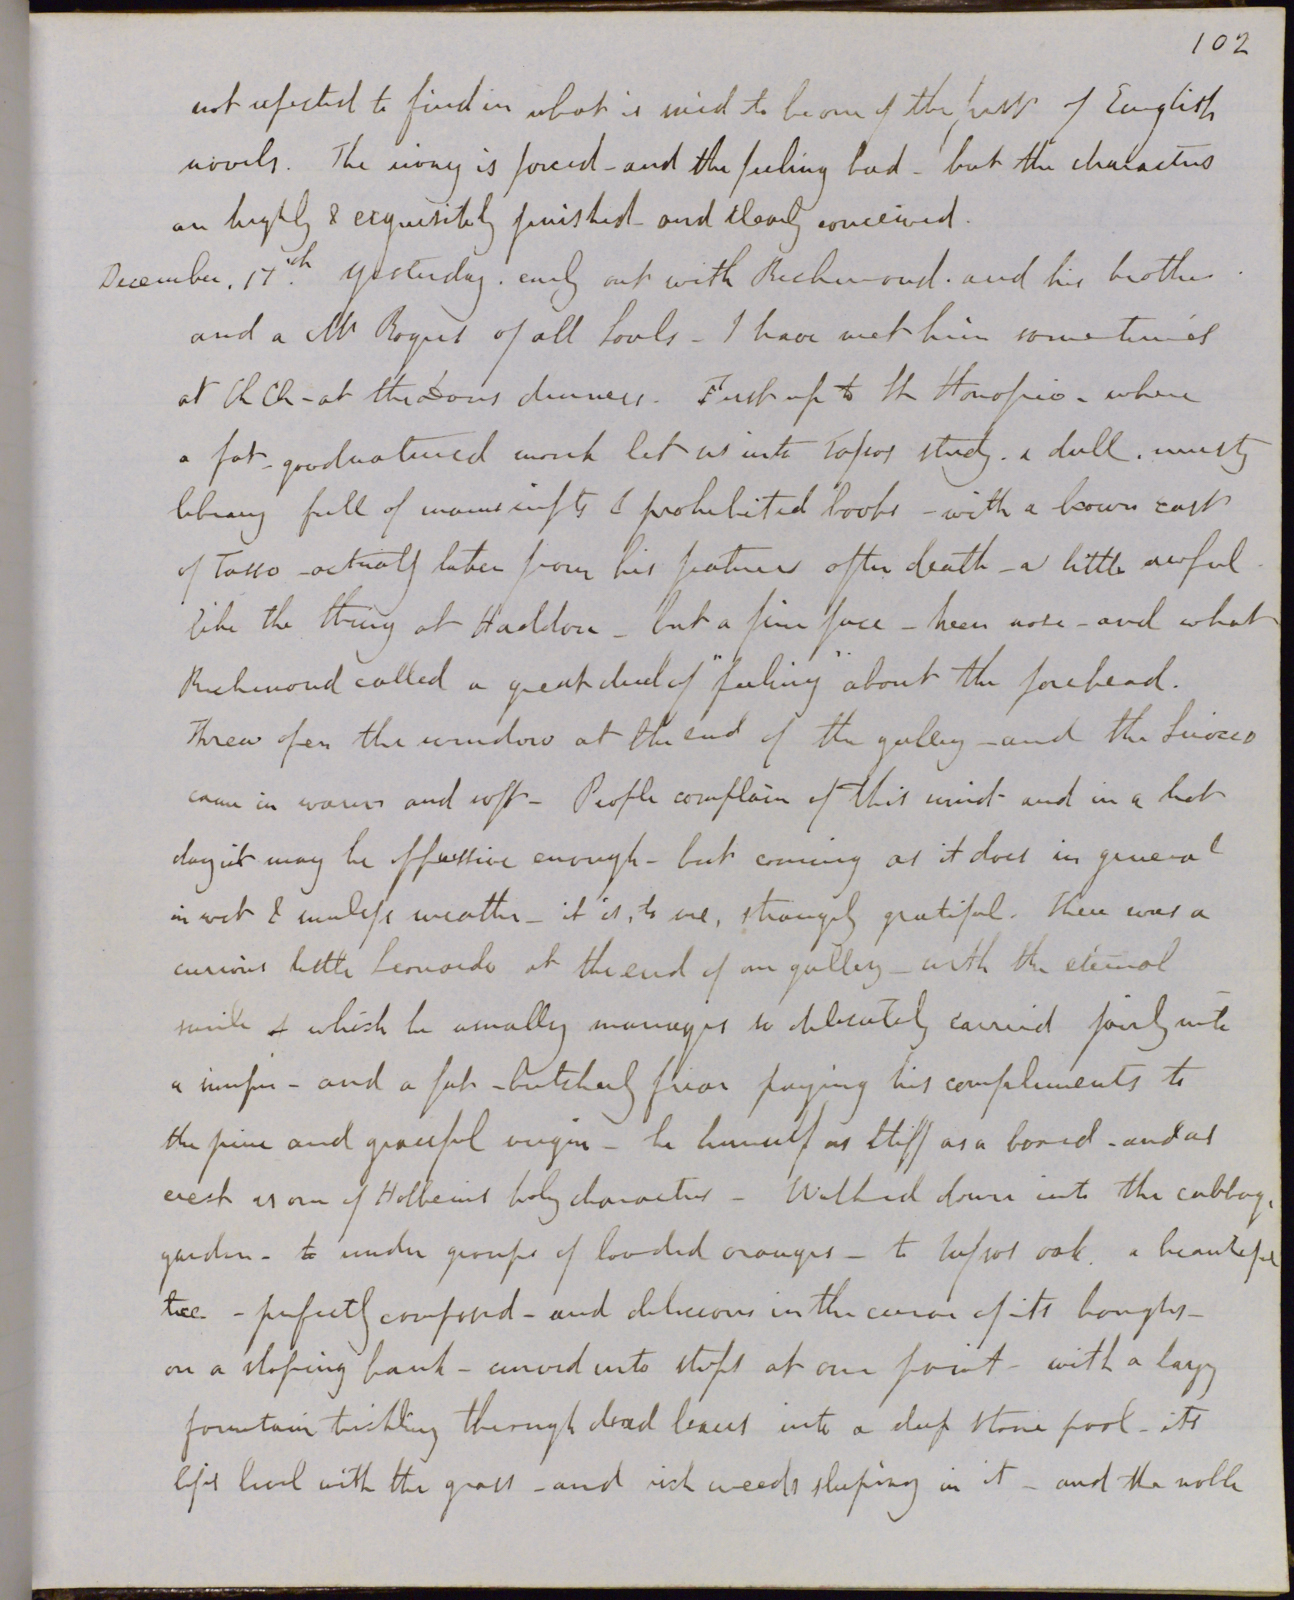 102
not expected to find in what is said to be one of the first of English
novels. The irony is forced - and the feeling bad - but the characters
are highly & exquisitely finished - and clearly conceived.
December. 17th. Yesterday. early out with Richmond. and his brother.
and a Mr Rogers of all Souls - I have met him sometimes
at Ch Ch - at the Dons dinners. First up to St Honofrio - where
a fat - goodnatured monk let us into Tassos study. a dull. musty
library full of manuscripts & prohibited books - with a brown cast
of Tasso - actually taken from his features after death - a little awful -
like the thing at Haddon - but a fine face - keen nose - and what
Richmond called a great deal of "feeling" about the forehead.
Threw open the window at the end of the gallery - and the Sirocco
came in warm and soft - People complain of this wind - and in a hot
day it may be oppressive enough - but coming as it does in general
in wet & sunless weather - it is, to me, strangely grateful. There was a
curious little Leonardo at the end of one gallery - with the eternal
smile which he usually manages so delicately carried fairly into
a simper - and a fat - butcherly friar paying his compliments to
the fine and graceful virgin - he himself as stiff as a board - and as
erect as one of Holbeins holy characters - Walked down into the cabbage
garden - to under groups of loaded oranges - to Tassos oak. a beautiful
tree - perfectly composed - and delicious in the curve of its boughs -
on a sloping bank - carved into steps at one point - with a lazy
fountain trickling through dead leaves into a deep stone pool - its
lips level with the grass - and rich weeds sleeping in it - and the noble